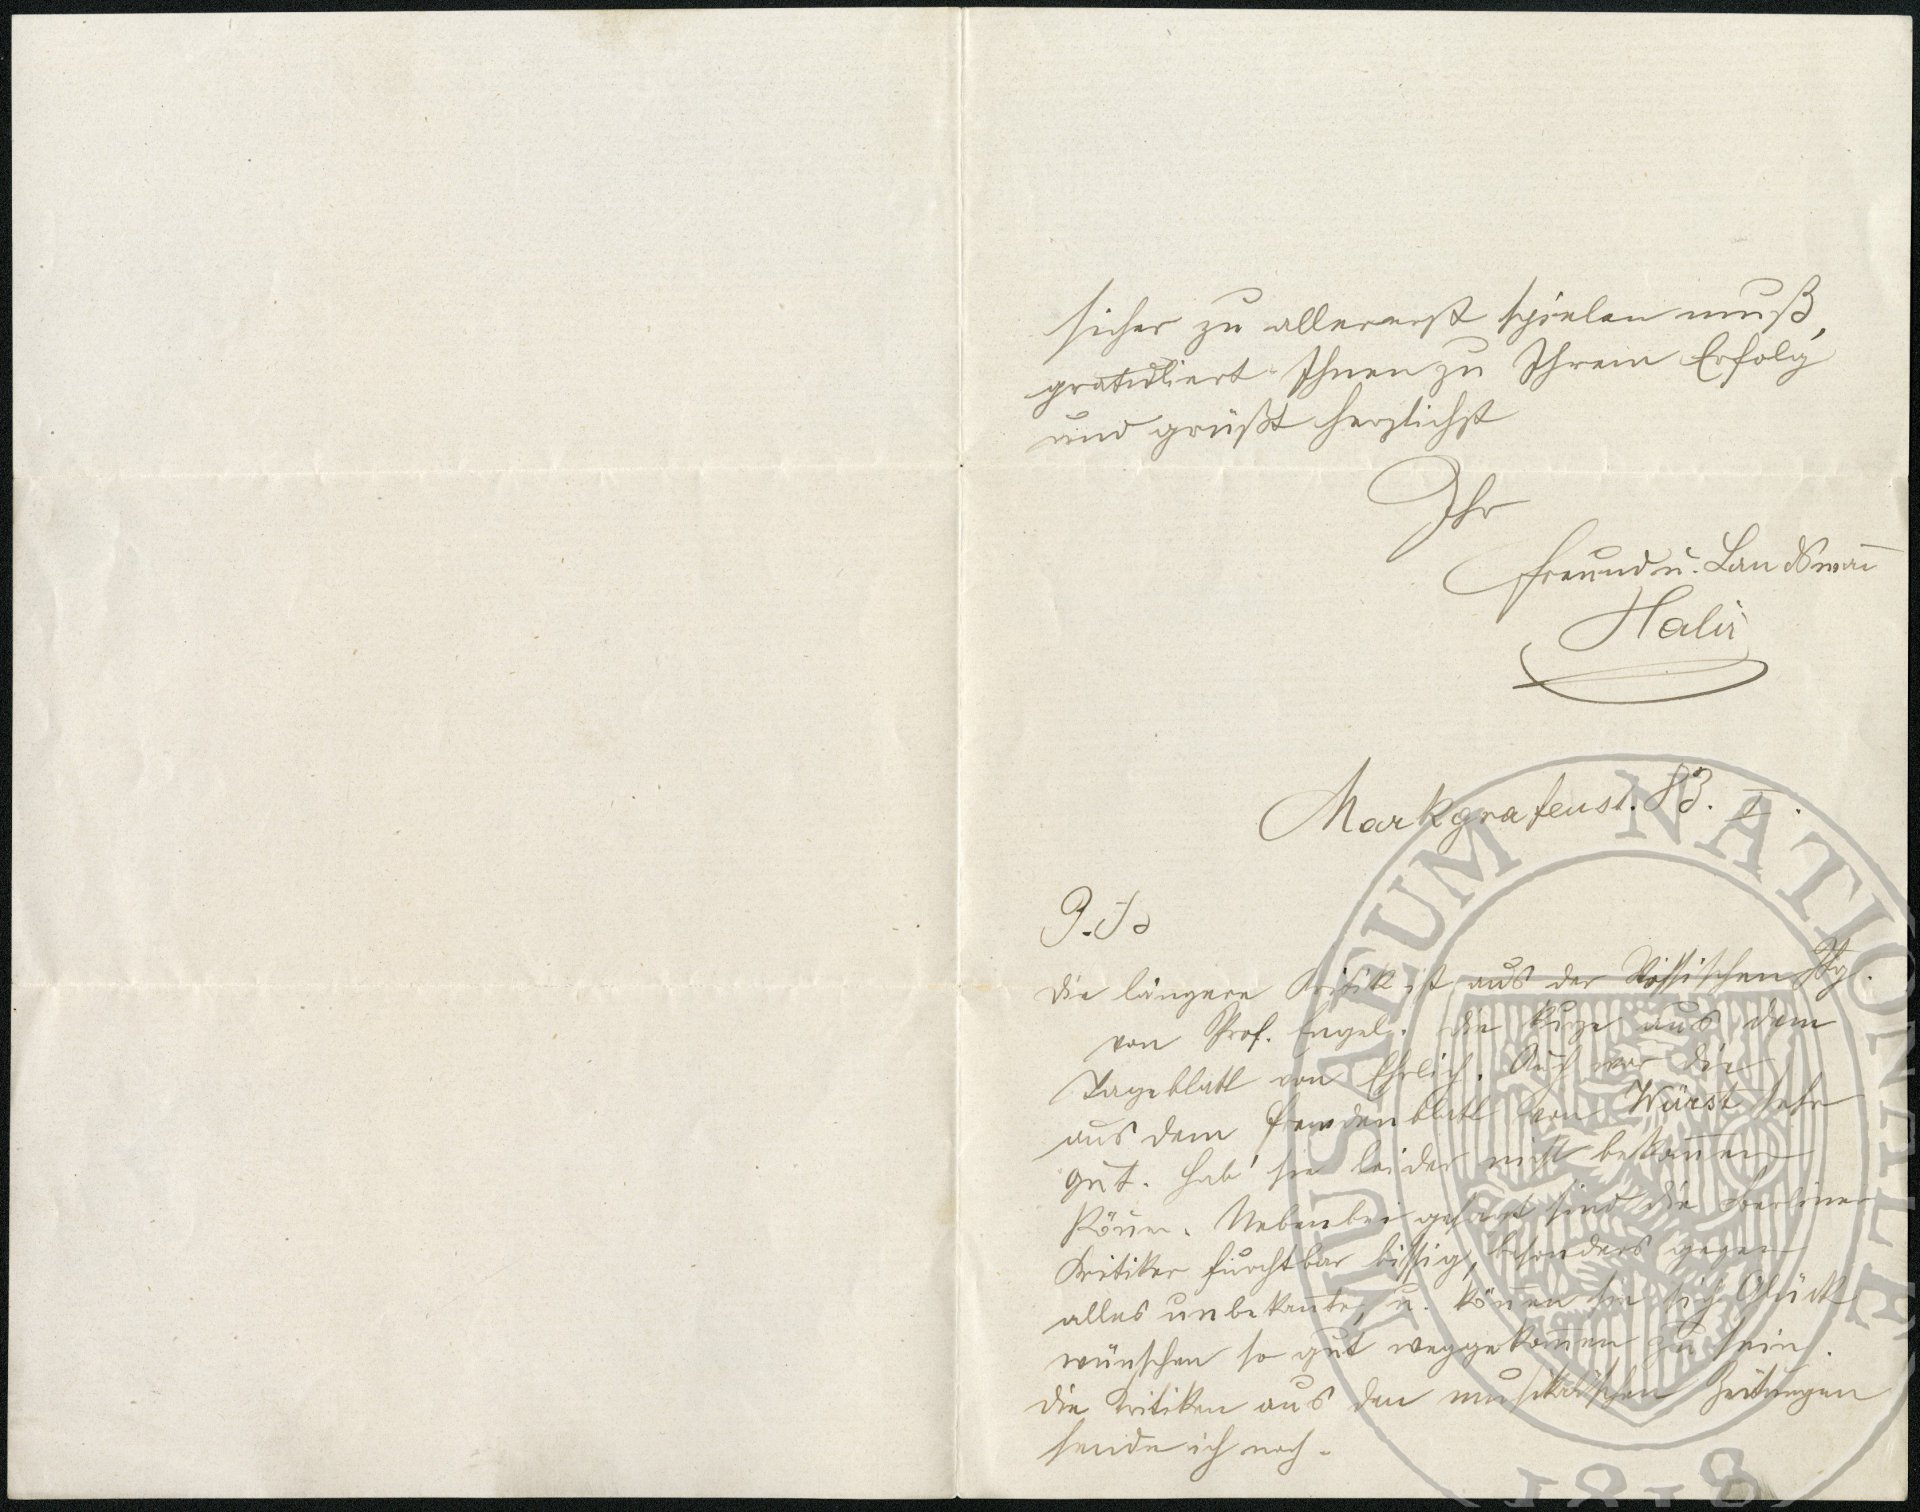 sicher zu allererst spielen muß,
gratuliert Ihnen zu Ihrem Erfolg
und grüßt herzlichst
Ihr
Freund u. Landsman̄
Halíř
Markgrafenst. 83. I.
P.S.
Die längere Kritik ist aus der Vossischen Ztg.
von Prof. Engel. Die kurze aus dem
Tageblatt von Ehrlich. Auch war die
aus dem Fremdenblatt von Wüerst sehr
gut. Hab' sie leider nicht bekom̄en
kön̄en. Nebenbei gesagt sind die Berliner
Kritiker furchtbar bissig, besonders gegen
alles unbekan̄te, u. kön̄en Sie sich Glück
wünschen so gut weggekom̄en zu sein.
Die Kritiken aus den musikalischen Zeitungen
sende ich noch.
MUSAEUM NATIONALE
1818